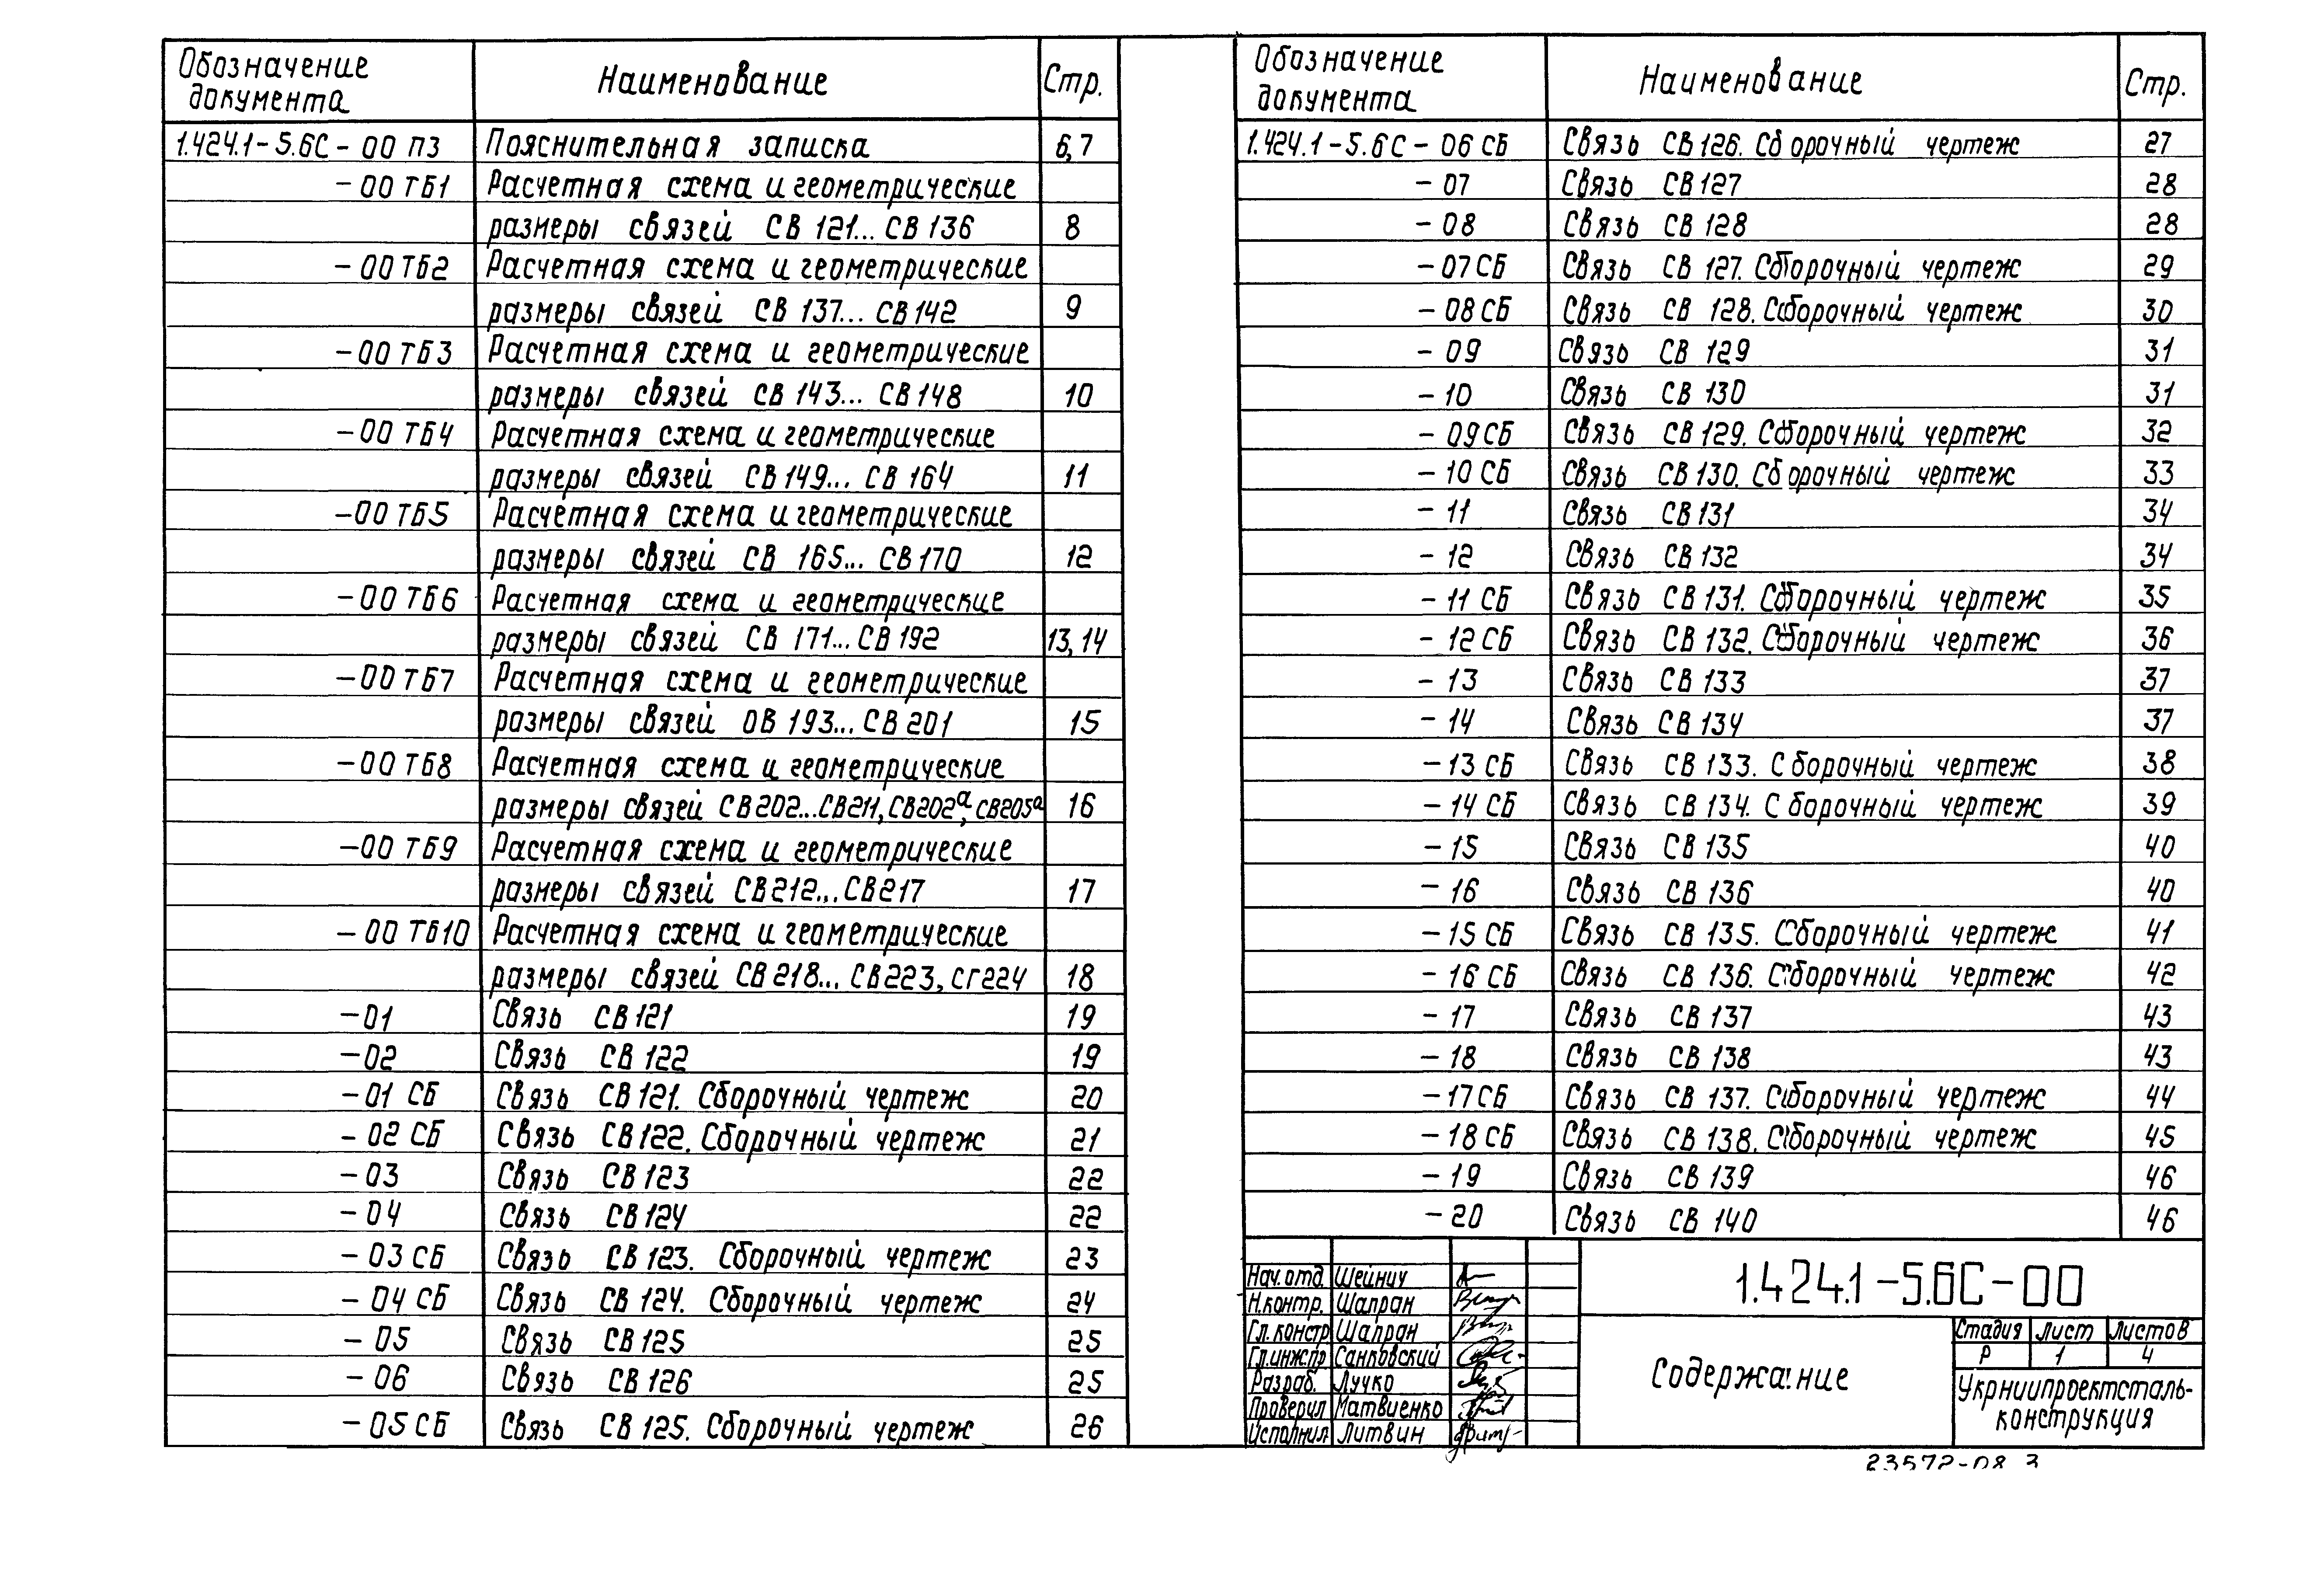 Обозначение документа Наименование Стр.
1.424.1-5.6С-00 ПЗ Пояснительная записка 6,7
-00 ТБ1 Расчетная схема и геометрические
размеры связей СВ 121... СВ 136 8
-00 ТБ2 Расчетная схема и геометрические
размеры связей СВ 137... СВ 142 9
-00 ТБ3 Расчетная схема и геометрические
размеры связей СВ 143... СВ 148 10
-00 ТБ4 Расчетная схема и геометрические
размеры связей СВ 149... СВ 164 11
-00 ТБ5 Расчетная схема и геометрические
размеры связей СВ 165... СВ 170 12
-00 ТБ6 Расчетная схема и геометрические
размеры связей СВ 171... СВ 192 13,14
-00 ТБ7 Расчетная схема и геометрические
размеры связей ОВ 193... СВ 201 15
-00 ТБ8 Расчетная схема и геометрические
размеры связей СВ202...СВ211, СВ202а, СВ205а 16
-00 ТБ9 Расчетная схема и геометрические
размеры связей СВ212...СВ217 17
-00 ТБ10 Расчетная схема и геометрические
размеры связей СВ218... СВ223, СГ224 18
-01 Связь СВ 121 19
-02 Связь СВ 122 19
-01 СБ Связь СВ 121. Сборочный чертеж 20
-02 СБ Связь СВ 122. Сборочный чертеж 21
-03 Связь СВ 123 22
-04 Связь СВ 124 22
-03 СБ Связь СВ 123. Сборочный чертеж 23
-04 СБ Связь СВ 124. Сборочный чертеж 24
-05 Связь СВ 125 25
-06 Связь СВ 126 25
-05 СБ Связь СВ 125. Сборочный чертеж 26
Обозначение документа Наименование Стр.
1.424.1-5.6С-06 СБ Связь СВ 126. Сборочный чертеж 27
-07 Связь СВ 127 28
-08 Связь СВ 128 28
-07 СБ Связь СВ 127. Сборочный чертеж 29
-08 СБ Связь СВ 128. Сборочный чертеж 30
-09 Связь СВ 129 31
-10 Связь СВ 130 31
-09 СБ Связь СВ 129. Сборочный чертеж 32
-10 СБ Связь СВ 130. Сборочный чертеж 33
-11 Связь СВ 131 34
-12 Связь СВ 132 34
-11 СБ Связь СВ 131. Сборочный чертеж 35
-12 СБ Связь СВ 132. Сборочный чертеж 36
-13 Связь СВ 133 37
-14 Связь СВ 134 37
-13 СБ Связь СВ 133. Сборочный чертеж 38
-14 СБ Связь СВ 134. Сборочный чертеж 39
-15 Связь СВ 135 40
-16 Связь СВ 136 40
-15 СБ Связь СВ 135. Сборочный чертеж 41
-16 СБ Связь СВ 136. Сборочный чертеж 42
-17 Связь СВ 137 43
-18 Связь СВ 138 43
-17 СБ Связь СВ 137. Сборочный чертеж 44
-18 СБ Связь СВ 138. Сборочный чертеж 45
-19 Связь СВ 139 46
-20 Связь СВ 140 46
Нач. отд. Шейнич
Н.контр. Шапран
Гл. констр Шапран
Гл.инж.пр Санковский
Разраб. Лучко
Проверил Матвиенко
Исполнил Литвин
1.424.1-5.6С-00
Содержание
Стадия Лист Листов
Р 1 4
Укрниипроектсталь-
конструкция
23572-08 3